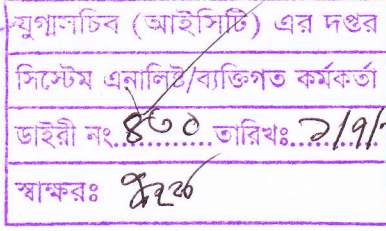 যুগ্মসচিব (আইসিটি) এর দপ্তর
সিস্টেম এনালিষ্ট/ব্যক্তিগত কর্মকর্তা
ডাইরী নং..৪৩০......তারিখঃ..১/৭/
স্বাক্ষরঃ